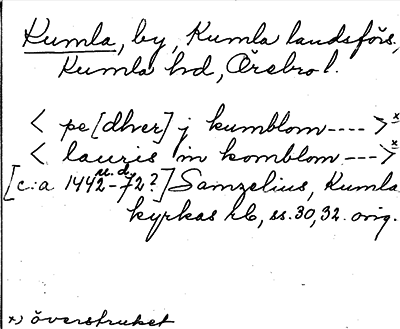 Kumla, by, Kumla landsförs,
Kumla hd, Örebro l.
< pe[dher] j kumblom ---- >*
< lauris in komblom --- >*
u.d.
[c:a 1442-72?] Samzelius, Kumla
kyrkas rb, ss. 30, 32. orig.
*) överstruket